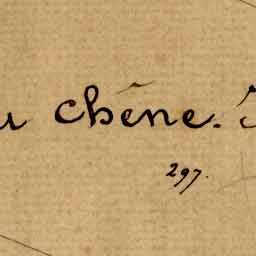 u chêne.
297.